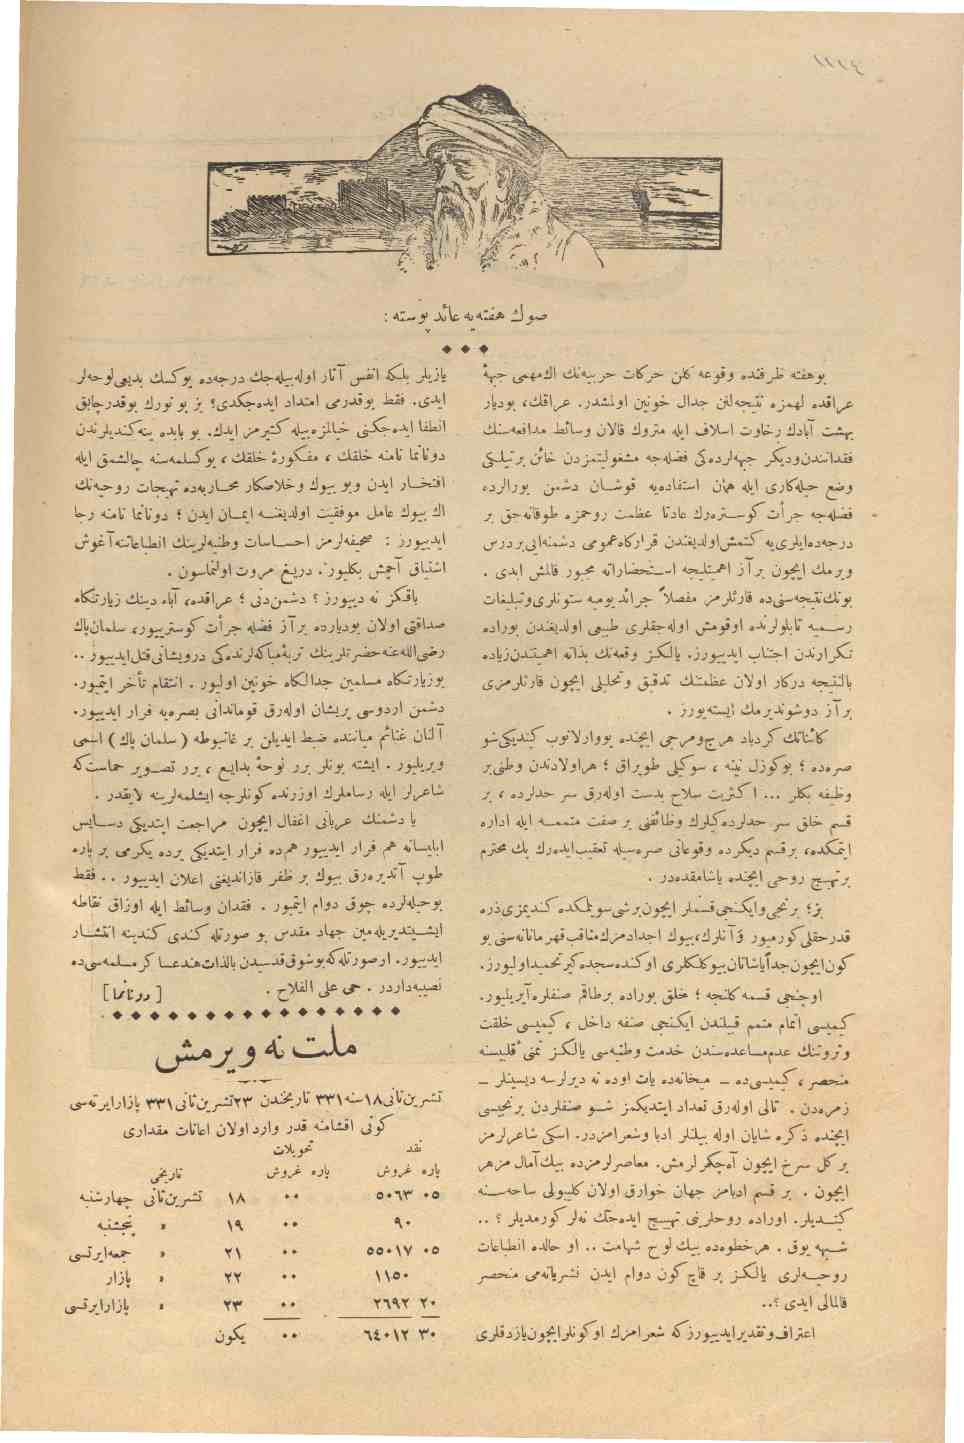 ١١١٤
صوك هفته‌یه عائد پوسته :
بوهفته ظرفنده وقوعه كلن حركات حربیه‌نك اك‌مهمی جبهۀ
عراقده لهمزه نتیجه‌لنن جدال خونین اولمشدر. عراقك، بودیار
بهشت آبادك رخاوت اسلاف ایله متروك قالان وسائط مدافعه‌سنك
فقدانندن ودیكر جبهه‌لرده‌كی فضله‌جه مشغولیتمزدن خائن برتیلكی
وضع حیله‌كاری ایله همان استفاده‌یه قوشان دشمن بورالرده
فضله‌جه جرأت كوستره‌رك عادتا عظمت روحمزه طوقانه‌جق بر
درجه‌ده ایلری‌یه كتمش اولدیغندن قراركاه عمومی دشمنه ایی بردرس
ویرمك ایچون بر آز اهمیتلیجه استحضاراته مجبور قالمش ایدی .
بونك نتیجه‌سنی‌ده قارئلرمز مفصلاً جرائد یومیه ستونلری وتبلیغات
رسمیه تابلولرنده اوقومش اوله‌جقلری طبیعی اولدیغندن بوراده
تكرارندن اجتناب ایدییورز. یالكز وقعه‌نك بذاته اهمیتندن زیاده
بالنتیجه دركار اولان عظمتنك تدقیق وتحلیلی ایچون قارئلرمزی
بر آز دوشوندیرمك ایسته‌یورز .
كائناتك كردباد هرج ومرجی ایچنده یووارلانوب كیتدیكی شو
صره‌ده ؛ بوكوزل نینه ، سوكیلی طوپراق ؛ هر اولادندن وطنی بر
وظیفه بكلر ... اكثریت سلاح بدست اوله‌رق سر حدلرده ، بر
قسم خلق سر حدلرده‌كیلرك وظائفنی بر صفت متممه ایله اداره
ایتمكده، برقسم دیكرده وقوعاتی صره‌سیله تعقیب ایده‌رك پك محترم
برتهییج روحی ایچنده یاشامقده‌در .
بز؛ برنجی وایكنجی قسملر ایچون برشی سویلمكده كندیمزی ذره
قدر حقلی كورمیور و آنلرك، بیوك اجدادمزك مناقب قهرمانانه‌سنی بو
كون ایچون جداً یاشاتان بیوكلكلری اوكنده سجده كبر تحمید اولیورز.
اوچنجی قسمه كلنجه ؛ خلق بوراده برطاقم صنفلره آیریلیور.
كیمیسی اتمام متمم قبیلندن ایكنجی صنفه داخل ، كیمیسی خلقت
وثروتنك عدم مساعده‌سندن خدمت وطنیه‌سی یالكز تمنی قلبیسنه
منحصر ، كیمیسی‌ده – میخانه‌ده یات اوده نه دیرلرسه دیسینلر –
زمره‌دن . تالی اوله‌رق تعداد ایتدیكمز شو صنفلردن برنجیسی
ایچنده ذكره شایان اوله بیلنلر ادبا وشعرامزدر. اسكی شاعرلرمز
بر كل سرخ ایچون آه چكرلرمش. معاصرلرمزده بیك آمال مزهر
ایچون . بر قسم ادبامز جهان خوارق اولان كلیبولی ساحه‌سنه
كیتدیلر. اوراده روحلرینی تهییج ایده‌جك نه‌لر كورمدیلر ؟ ..
شبهه یوق . هر خطوه‌ده بیك لوح شهامت .. او حالده انطباعات
روحیه‌لری یالكز بر قاچ كون دوام ایدن نشریاته‌می منحصر
قالمالی ایدی ؟..
اعتراف وتقدیر ایدییورزكه شعرامزك اوكونلر ایچون یازدقلری
یازیلر بلكه انفس آثار اوله‌بیله‌جك درجه‌ده یوكسك بدیعی لوحه‌لر
ایدی. فقط بوقدرمی امتداد ایده‌جكدی؟ بز بو نورك بوقدر چابق
انطفا ایده‌جكنی خیالمزه بیله كتیرمز ایدك. بو بابده ینه كندیلرندن
دونانما نامنه خلقك ، مفكورۀ خلقك ، یوكسلمه‌سنه چالشمق ایله
افتخار ایدن وبو بیوك وخلاصكار محاربه‌ده تهیجات روحیه‌نك
اك بیوك عامل موفقیت اولدیغنه ایمان ایدن ؛ دونانما نامنه رجا
ایدییورز : صحیفه‌لرمز احساسات وطنیه‌لرینك انطباعاتنه آغوش
اشتیاق آچمش بكلیور. دریغ مروت اولنماسون .
باقكز نه دییورز ؟ دشمن دنی ؛ عراقده، آباء دینك زیارتكاه
صداقتی اولان بودیارده بر آز فضله جرأت كوسترییور، سلمان پاك
رضی‌الله‌عنه حضرتلرینك تربۀ مباركه‌لرنده‌كی درویشانی قتل ایدییور ..
بوزیارتكاه مسلمین جدالكاه خونین اولیور . انتقام تأخر ایتمیور.
دشمن اردوسی پریشان اوله‌رق قومانداتی بصره‌یه فرار ایدییور.
آلنان غنائم میاننده ضبط ایدیلن بر غانبوطه (سلمان پاك) اسمی
ویریلیور . ایشته بونلر برر نوحۀ بدایع ، برر تصویر حماست كه
شاعرلر ایله رساملرك اوزرنده كونلرجه ایشلمه‌لرینه لایقدر .
یا دشمنك عربانی اغفال ایچون مراجعت ایتدیكی دسایس
ابلیسانه هم فرار ایدییور هم‌ده فرار ایتدیكی یرده یكرمی بر پاره
طوپ آتدیره‌رق بیوك بر ظفر قازاندیغنی اعلان ایدییور .. فقط
بوحیله‌لرده چوق دوام ایتمیور . فقدان وسائط ایله اوزاق نقاطه
ایشیتدیریله‌مین جهاد مقدس بو صورتله كندی كندینه انتشار
ایدییور. اوصورتله كه بوشوق قدسیدن بالذات هندعساكر مسلمه‌سی‌ده
نصیبه‌داردر . حی علی الفلاح . [دونانما]
ملت نه ویرمش
تشرین ثانی ١٨ سنه ٣٣١ تاریخندن ٢٣ تشرین ثانی ٣٣١ بازارایرته‌سی
كونی اقشامنه قدر وارد اولان اعانات مقداری
نقد تحویلات
پاره غروش پاره غروش تاریخی
٠٥ ٥٠٦٣ ٠٠ ١٨ تشرین ثانی چهارشنبه
٩٠ ٠٠ ١٩ » پنجشنبه
٠٥ ٥٥٠١٧ ٠٠ ٢١ » جمعه‌ایرتسی
١١٥٠ ٠٠ ٢٢ » پازار
٢٠ ٢٦٩٢ ٠٠ ٢٣ » پازارایرتسی
٣٠ ٦٤٠١٢ ٠٠ یكون